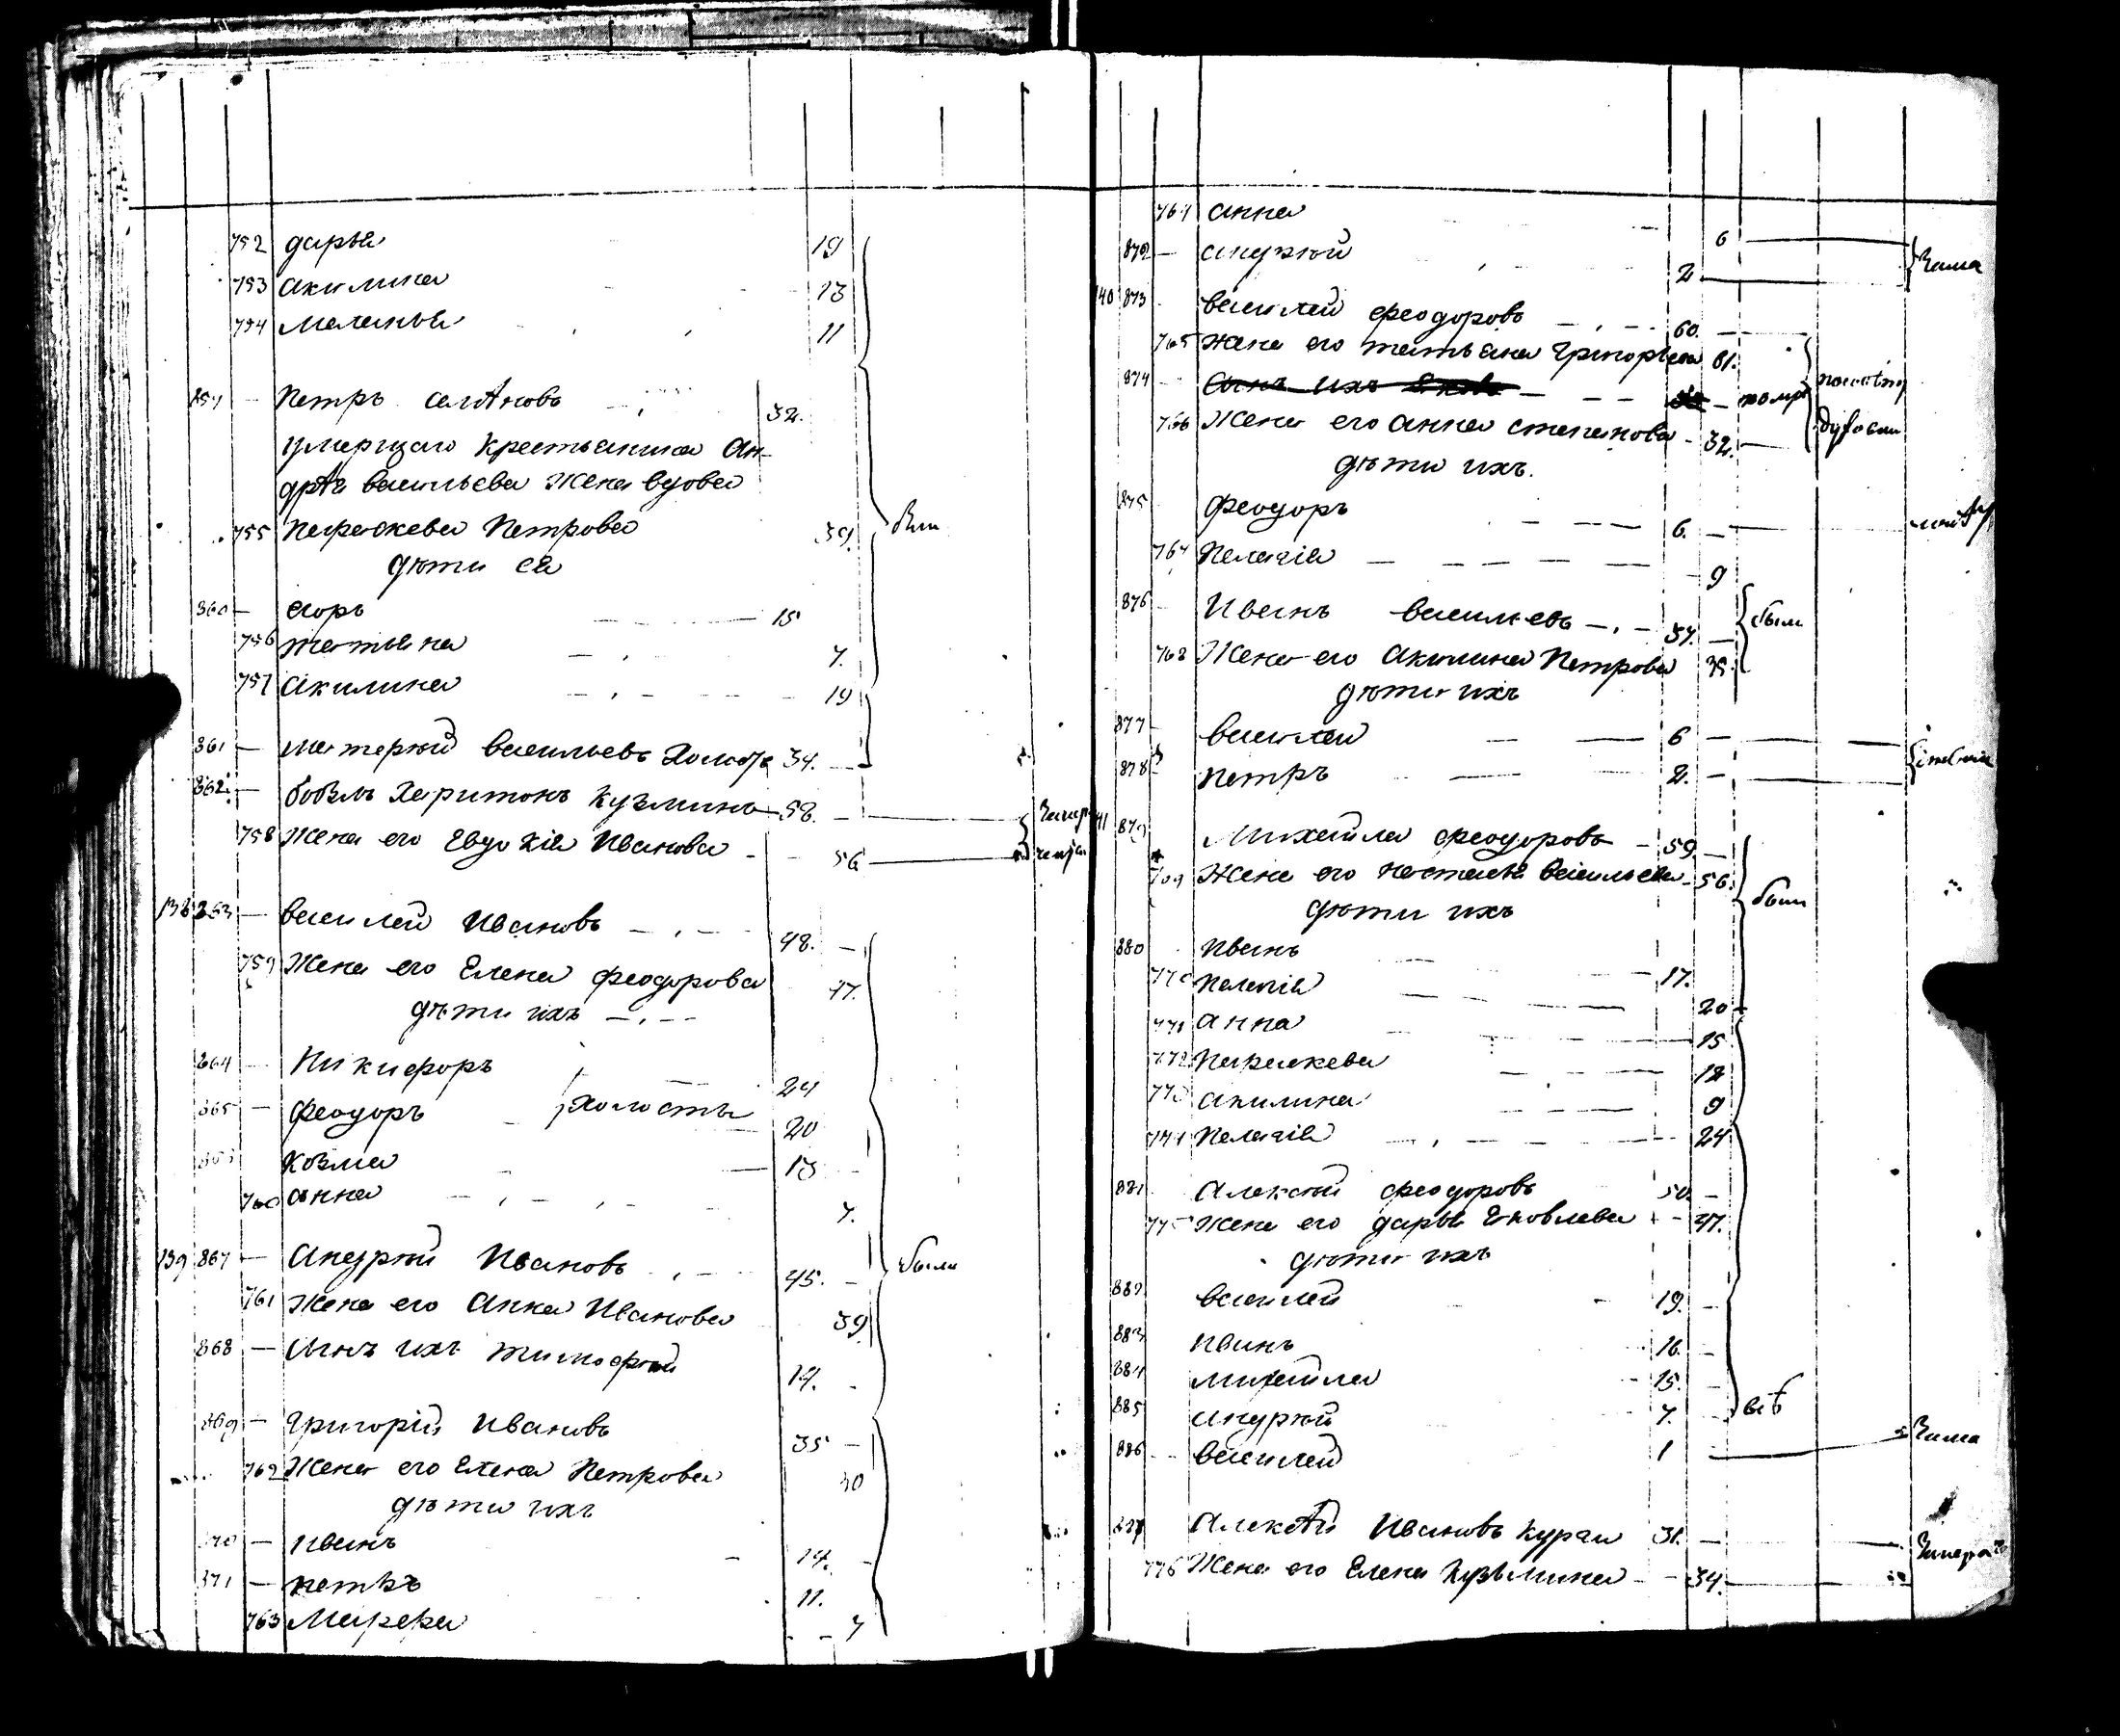 752 дарья 19
753 акилина 13
754 Маланья 11
Петръ 32.
умершаго крестьянина Ан-
дрѣя васильева жена вдова
755 Параскева Петрова 39.
дѣти ея
860 — егоръ 15
756 татьяна 7.
757 акилина 19
861 — васильевъ 34.
862. — бобыль Харитонъ Кузминъ 58.
758 жена его Евдокія Иванова 56
138 863 — василей Ивановъ 48.
759 жена его Елена феодорова 47.
дѣти ихъ
864 Никифоръ 24
865 — феодоръ холосты 20
козма 13
760 анна 7.
139 867 — андрѣй Ивановъ 45. были
761 жена его Анна Иванова 39
868 — сынъ ихъ тимофѣй 14.
869 — григорій Ивановъ 35
762 жена его Елена Петрова 30
дѣти ихъ
870 — иванъ 14.
871 — петръ 11.
763 Марфа 7
764 анна 6
872 — андрѣй 2
140 873 василей феодоровъ 60.
765 жена его татьяна григорьева 61.
874 сынъ ихъ
766 жена его анна степанова 32.
дѣти ихъ.
875 феодоръ 6.
767 пелагія 9
876 Иванъ васильевъ 37. были
768 жена его акилина Петрова 35.
дѣти ихъ
877 василей 6
878 петръ 2.
141 879 Михайла феодоровъ 59.
769 жена его настасья васильева 56. были
дѣти ихъ
880 иванъ 17.
770 пелагія 20
771 анна 15
772 параскева 12
773 акилина 9
774 пелагія 24
881 алексѣй феодоровъ 50.
775 жена его дарья Яковлева 47.
дѣти ихъ
882 василей 19.
883 иванъ 16.
884 михайла 15.
885 андрѣй 7.
886 василей 1
887 алексѣй Ивановъ 31.
776 жена его Елена Кузьмина 34.